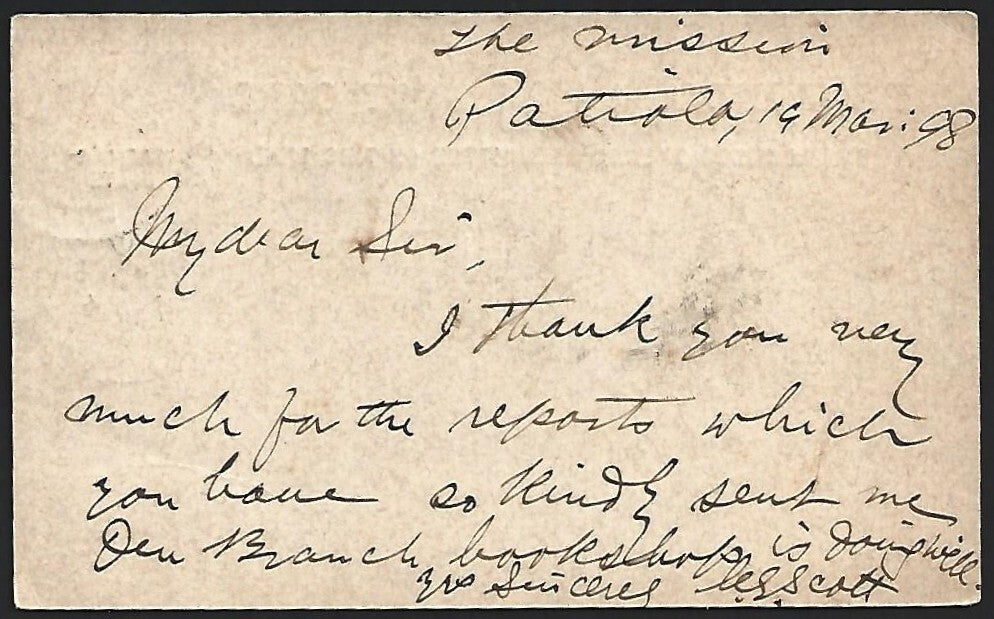 The Mission
Patiala, 19 Mar: 98
My dear Sir,
I thank you very
much for the reports which
you have so kindly sent me
Our Branch bookshop is doing well.
Yrs Sincerely Scott